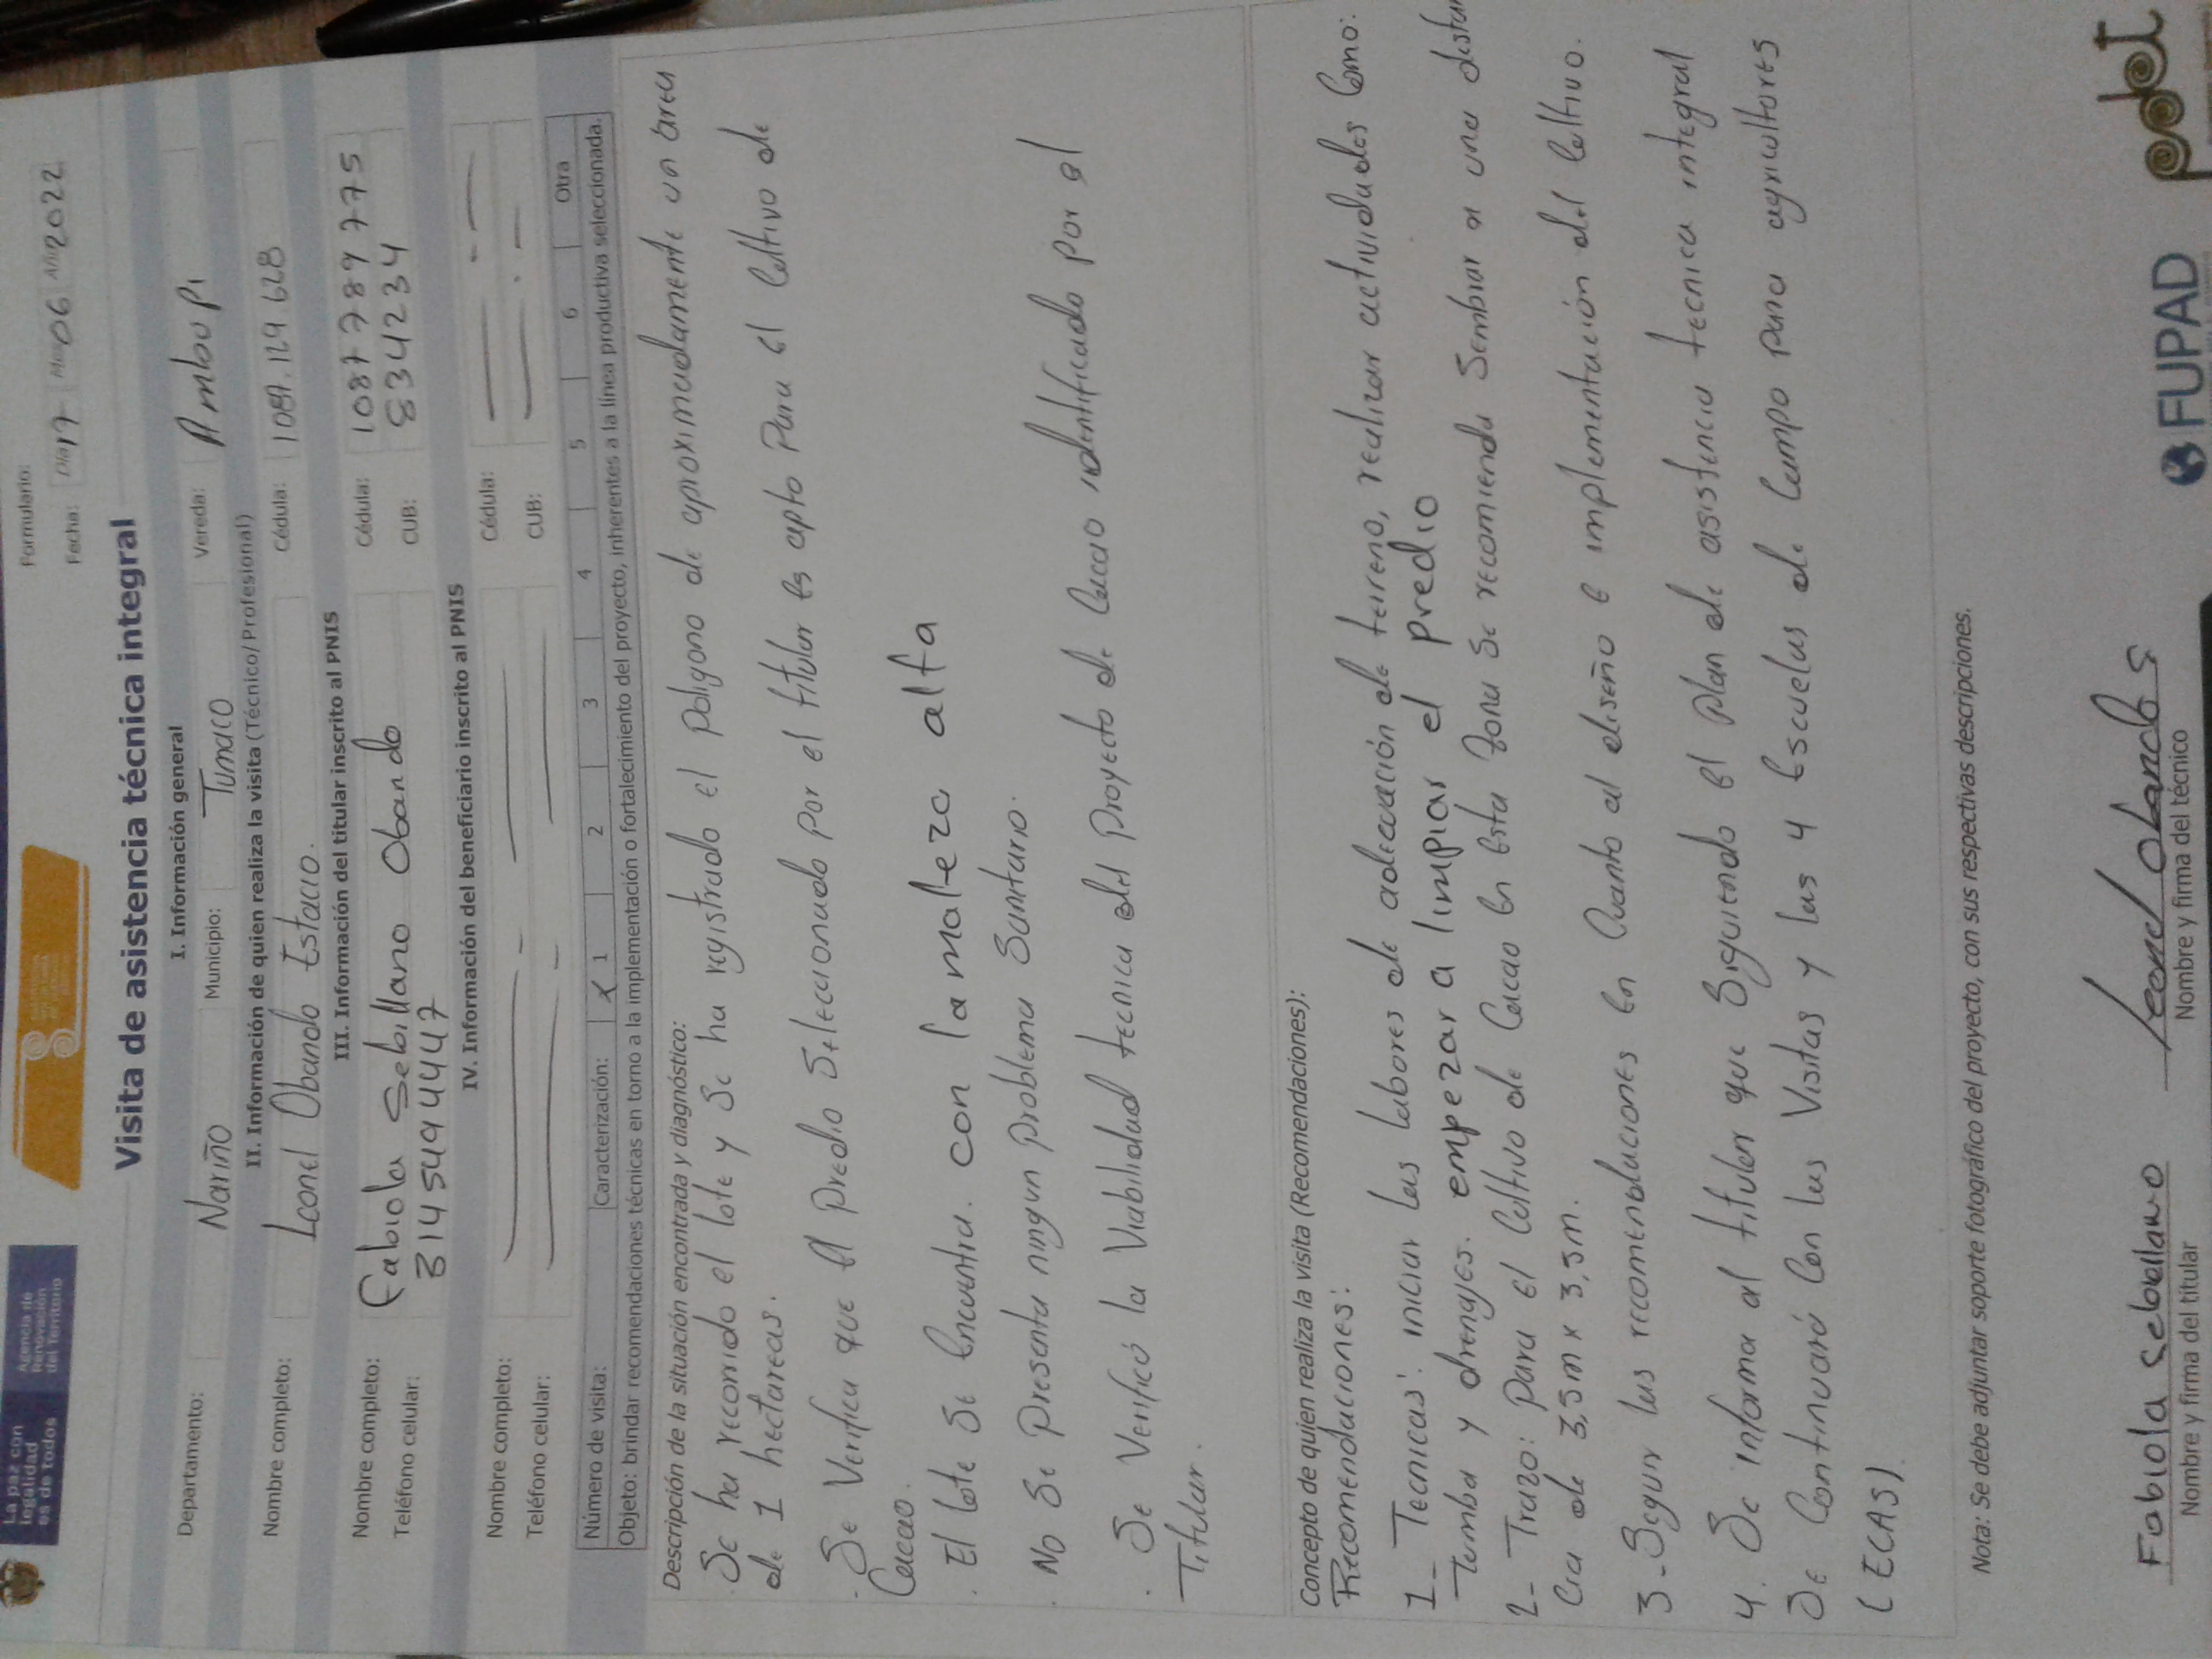 La paz con
legalidad
es de todos
Agencia de
Renovación
del Territorio
Formulario:
Fecha: Día 17 Mes 06 Año 2022
Visita de asistencia técnica integral
I. Información general
Departamento: Nariño Municipio: Tumaco Vereda: Ambupi
II. Información de quien realiza la visita (Técnico/Profesional)
Nombre completo: Leonel Obando Estacio. Cédula:
III. Información del titular inscrito al PNIS
Nombre completo: Fabiola Sebillano Obando Cédula: 1087789775
Teléfono celular: 3145494447 CUB: 8342234
IV. Información del beneficiario inscrito al PNIS
Nombre completo: Cédula:
Teléfono celular: CUB:
Número de visita: Caracterización: X 1 2 3 4 5 6 Otra
Objeto: brindar recomendaciones técnicas en torno a la implementación o fortalecimiento del proyecto, inherentes a la línea productiva seleccionada.
Descripción de la situación encontrada y diagnóstico:
. Se ha recorrido el lote y Se ha registrado el Poligono de aproximadamente un área
de 1 hectareas.
. Se Verifica que El Predio Seleccionado por el titular es apto Para el Cultivo de
Cacao.
. El lote Se Encuentra. con la maleza alta
. No Se Presenta ningun problema Sanitario.
. Se Verificó la Viabilidad tecnica del Proyecto de Cacao identificado por el
Titular.
Concepto de quien realiza la visita (Recomendaciones):
Recomendaciones:
1- Tecnicas: iniciar las labores de adecuación de terreno, realizar actividades Como:
Tumba y drenajes. empezar a limpiar el predio
2- Trazo: para el Cultivo de Cacao en esta zona Se recomienda Sembrar a una distan
cia de 3,5m x 3,5m.
3- Seguir las recomendaciones en Cuanto al diseño e implementación del Cultivo.
4. Se informa al titular que Siguiendo el plan de asistencia tecnica integral
Se Continuará Con las Visitas y las 4 Escuelas de Campo para agricultores
(ECAS).
Nota: Se debe adjuntar soporte fotográfico del proyecto, con sus respectivas descripciones.
Fabiola sebellano
Nombre y firma del titular
Leonel obando E
Nombre y firma del técnico
FUPAD
pdet